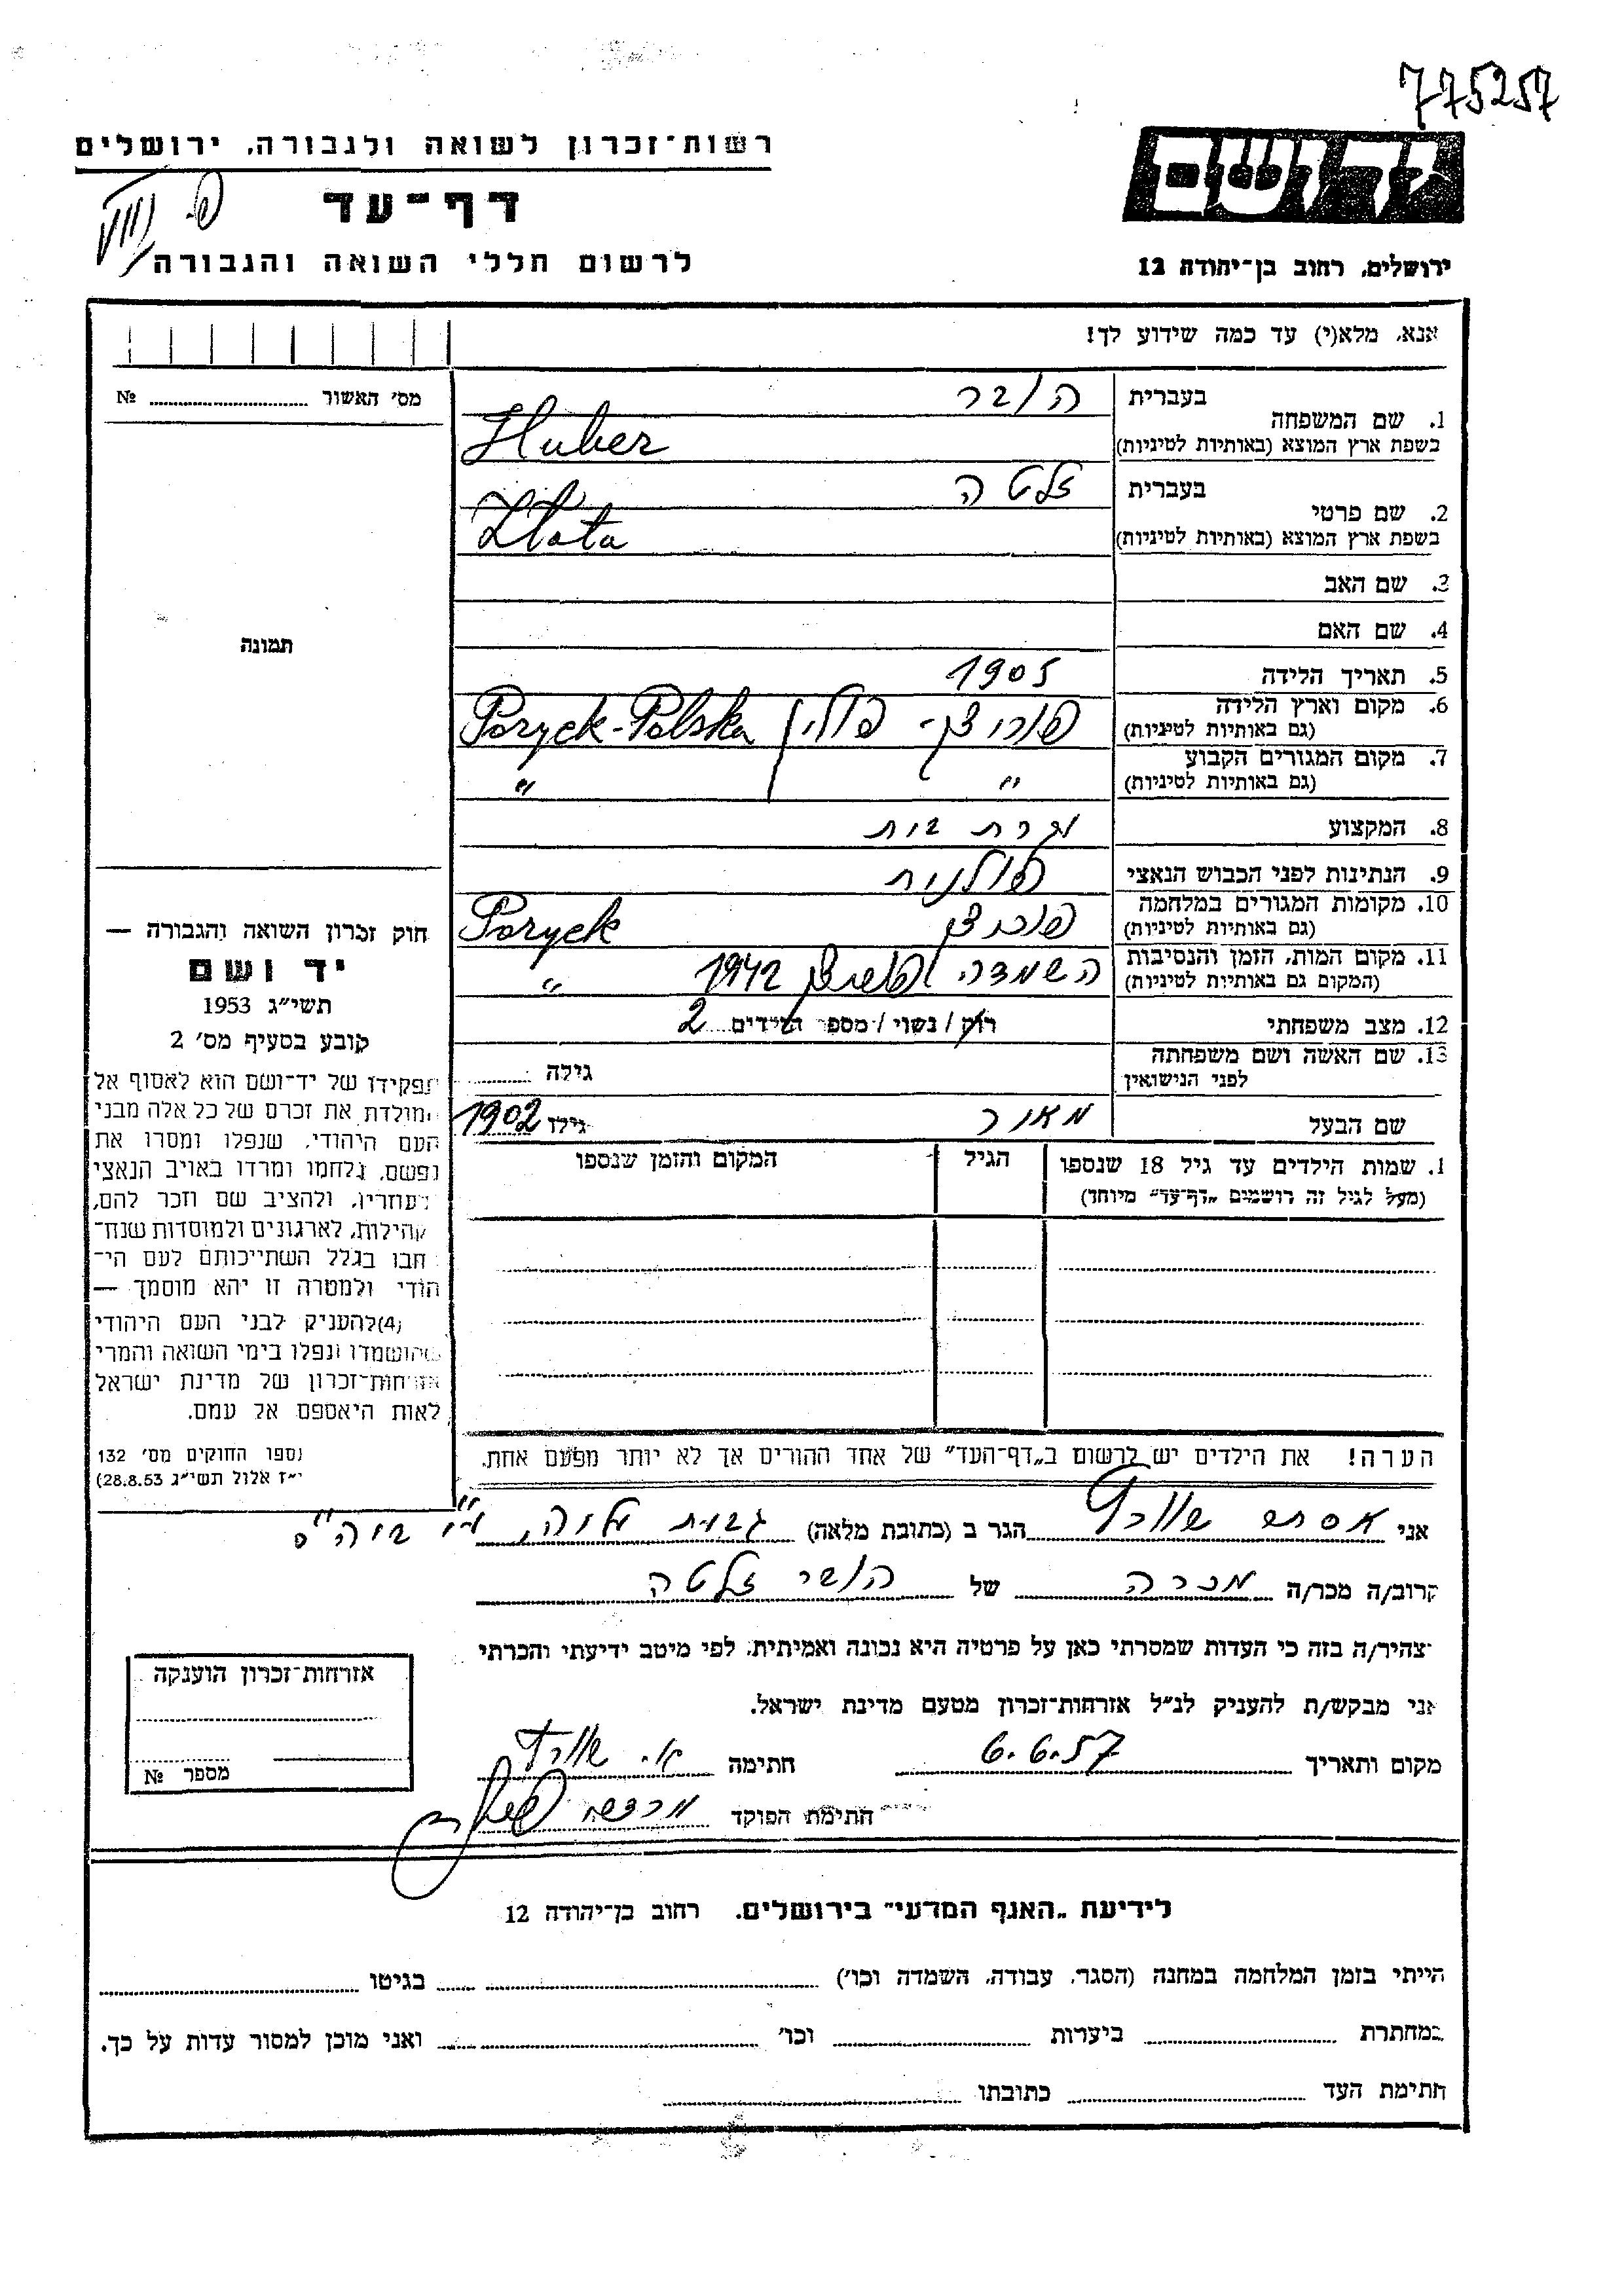 775257
רשות־זכרון לשואה ולגבורה, ירושלים
יד ושם
דף־עד
לרשום חללי השואה והגבורה
ירושלים, רחוב בן־יהודה 12
אנא, מלא(י) עד כמה שידוע לך!
מס׳ האשור № 
1. שם המשפחה בעברית הובר
בשפת ארץ המוצא (באותיות לטיניות) Huber
2. שם פרטי בעברית זלטה
בשפת ארץ המוצא (באותיות לטיניות) Zlata
3. שם האב
4. שם האם
תמונה
5. תאריך הלידה 1905
6. מקום וארץ הלידה (גם באותיות לטיניות) פוריצק - פולין Poryck-Polska
7. מקום המגורים הקבוע (גם באותיות לטיניות) " "
8. המקצוע עקרת בית
9. הנתינות לפני הכבוש הנאצי פולנית
10. מקומות המגורים במלחמה (גם באותיות לטיניות) פוריצק Poryck
11. מקום המות, הזמן והנסיבות (המקום גם באותיות לטיניות) השמדה 1942 "
12. מצב משפחתי רוק / נשוי / מספר הילדים 2
13. שם האשה ושם משפחתה לפני הנישואין גילה
שם הבעל מאיר גילו 1902
חוק זכרון השואה והגבורה —
יד ושם
תשי״ג 1953
קובע בסעיף מס׳ 2
תפקידו של יד־ושם הוא לאסוף אל
המולדת את זכרם של כל אלה מבני
העם היהודי, שנפלו ומסרו את
נפשם, נלחמו ומרדו באויב הנאצי
ובעוזריו, ולהציב שם וזכר להם,
לקהילות, לארגונים ולמוסדות שנח־
רבו בגלל השתייכותם לעם הי־
הודי ולמטרה זו יהא מוסמך —
(4) להעניק לבני העם היהודי
שהושמדו ונפלו בימי השואה והמרי
אזרחות־זכרון של מדינת ישראל
לאות היאספם אל עמם.
(ספר החוקים מס׳ 132
י״ז אלול תשי״ג 28.8.53)
1. שמות הילדים עד גיל 18 שנספו הגיל המקום והזמן שנספו
(מעל לגיל זה רושמים „דף־עד״ מיוחד)
הערה! את הילדים יש לרשום ב„דף־העד״ של אחד ההורים אך לא יותר מפעם אחת.
אני אסתר הגר ב (כתובת מלאה) גבעת
קרוב/ה מכר/ה מכרה של הובר זלטה
מצהיר/ה בזה כי העדות שמסרתי כאן על פרטיה היא נכונה ואמיתית, לפי מיטב ידיעתי והכרתי
אני מבקש/ת להעניק לנ״ל אזרחות־זכרון מטעם מדינת ישראל.
מקום ותאריך 6.6.57 חתימה א.
חתימת הפוקד
אזרחות־זכרון הוענקה
מספר №
לידיעת „האגף המדעי״ בירושלים, רחוב בן־יהודה 12
הייתי בזמן המלחמה במחנה (הסגר, עבודה, השמדה וכו׳) בגיטו
במחתרת ביערות וכו׳ ואני מוכן למסור עדות על כך.
חתימת העד כתובתו